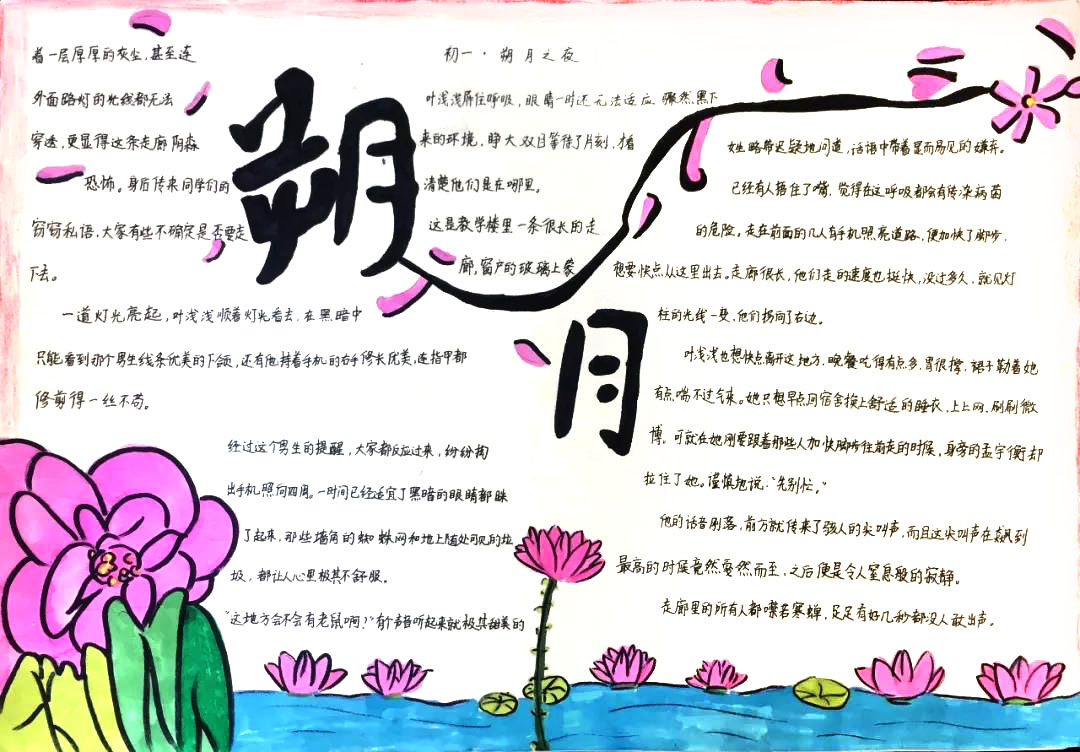 朔月
初一·朔月之夜
叶浅浅屏住呼吸，眼睛一时还无法适应骤然黑下
来的环境，睁大双目等待了片刻，才看
清楚他们是在哪里。
这是教学楼里一条很长的走
廊，窗户的玻璃上蒙
着一层厚厚的灰尘，甚至连
外面路灯的光线都无法
穿透，更显得这条走廊阴森
恐怖。身后传来同学们的
窃窃私语，大家有些不确定是否要走
下去。
一道灯光亮起，叶浅浅顺着灯光看去，在黑暗中
只能看到那个男生线条优美的下颌，还有他持着手机的右手修长优美，连指甲都
修剪得一丝不苟。
经过这个男生的提醒，大家都反应过来，纷纷掏
出手机照向四周。一时间已经适宜了黑暗的眼睛都眯
了起来，那些墙角的蜘蛛网和地上随处可见的垃
圾，都让人心里极其不舒服。
“这地方会不会有老鼠啊？”有个声音听起来就极其甜美的
她略带迟疑地问道，话语中带着显而易见的嫌弃。
已经有人捂住了嘴，觉得在这呼吸都会有传染病菌
的危险。走在前面的几人有手机照亮道路，便加快了脚步，
想要快点从这里出去。走廊很长，他们走的速度也挺快，没过多久，就见灯
柱的光线一变，他们拐向了右边。
叶浅浅也想快点离开这地方，晚餐吃得有点多，胃很撑，裙子勒着她
有点喘不过气来。她只想早点回宿舍换上舒适的睡衣，上上网、刷刷微
博。可就在她刚要跟着那些人加快脚步往前走的时候，身旁的孟宇衡却
拉住了她。谨慎地说：“先别忙。”
他的话音刚落，前方就传来了骇人的尖叫声，而且这尖叫声在飙到
最高的时候竟然戛然而至，之后便是令人窒息般的寂静。
走廊里的所有人都噤若寒蝉，足足有好几秒都没人敢出声。